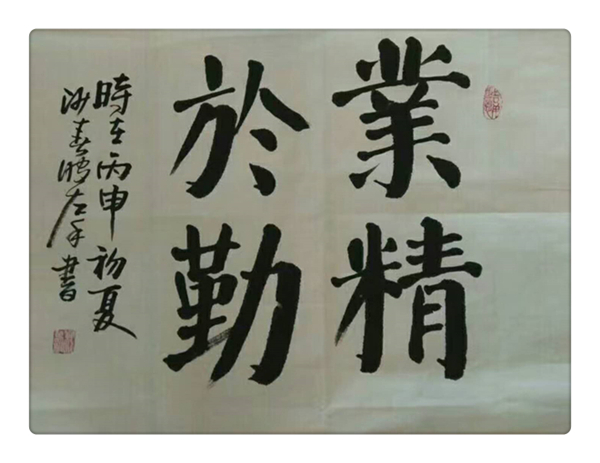 業精
於勤
時在丙申初夏
沙春鵬左手書